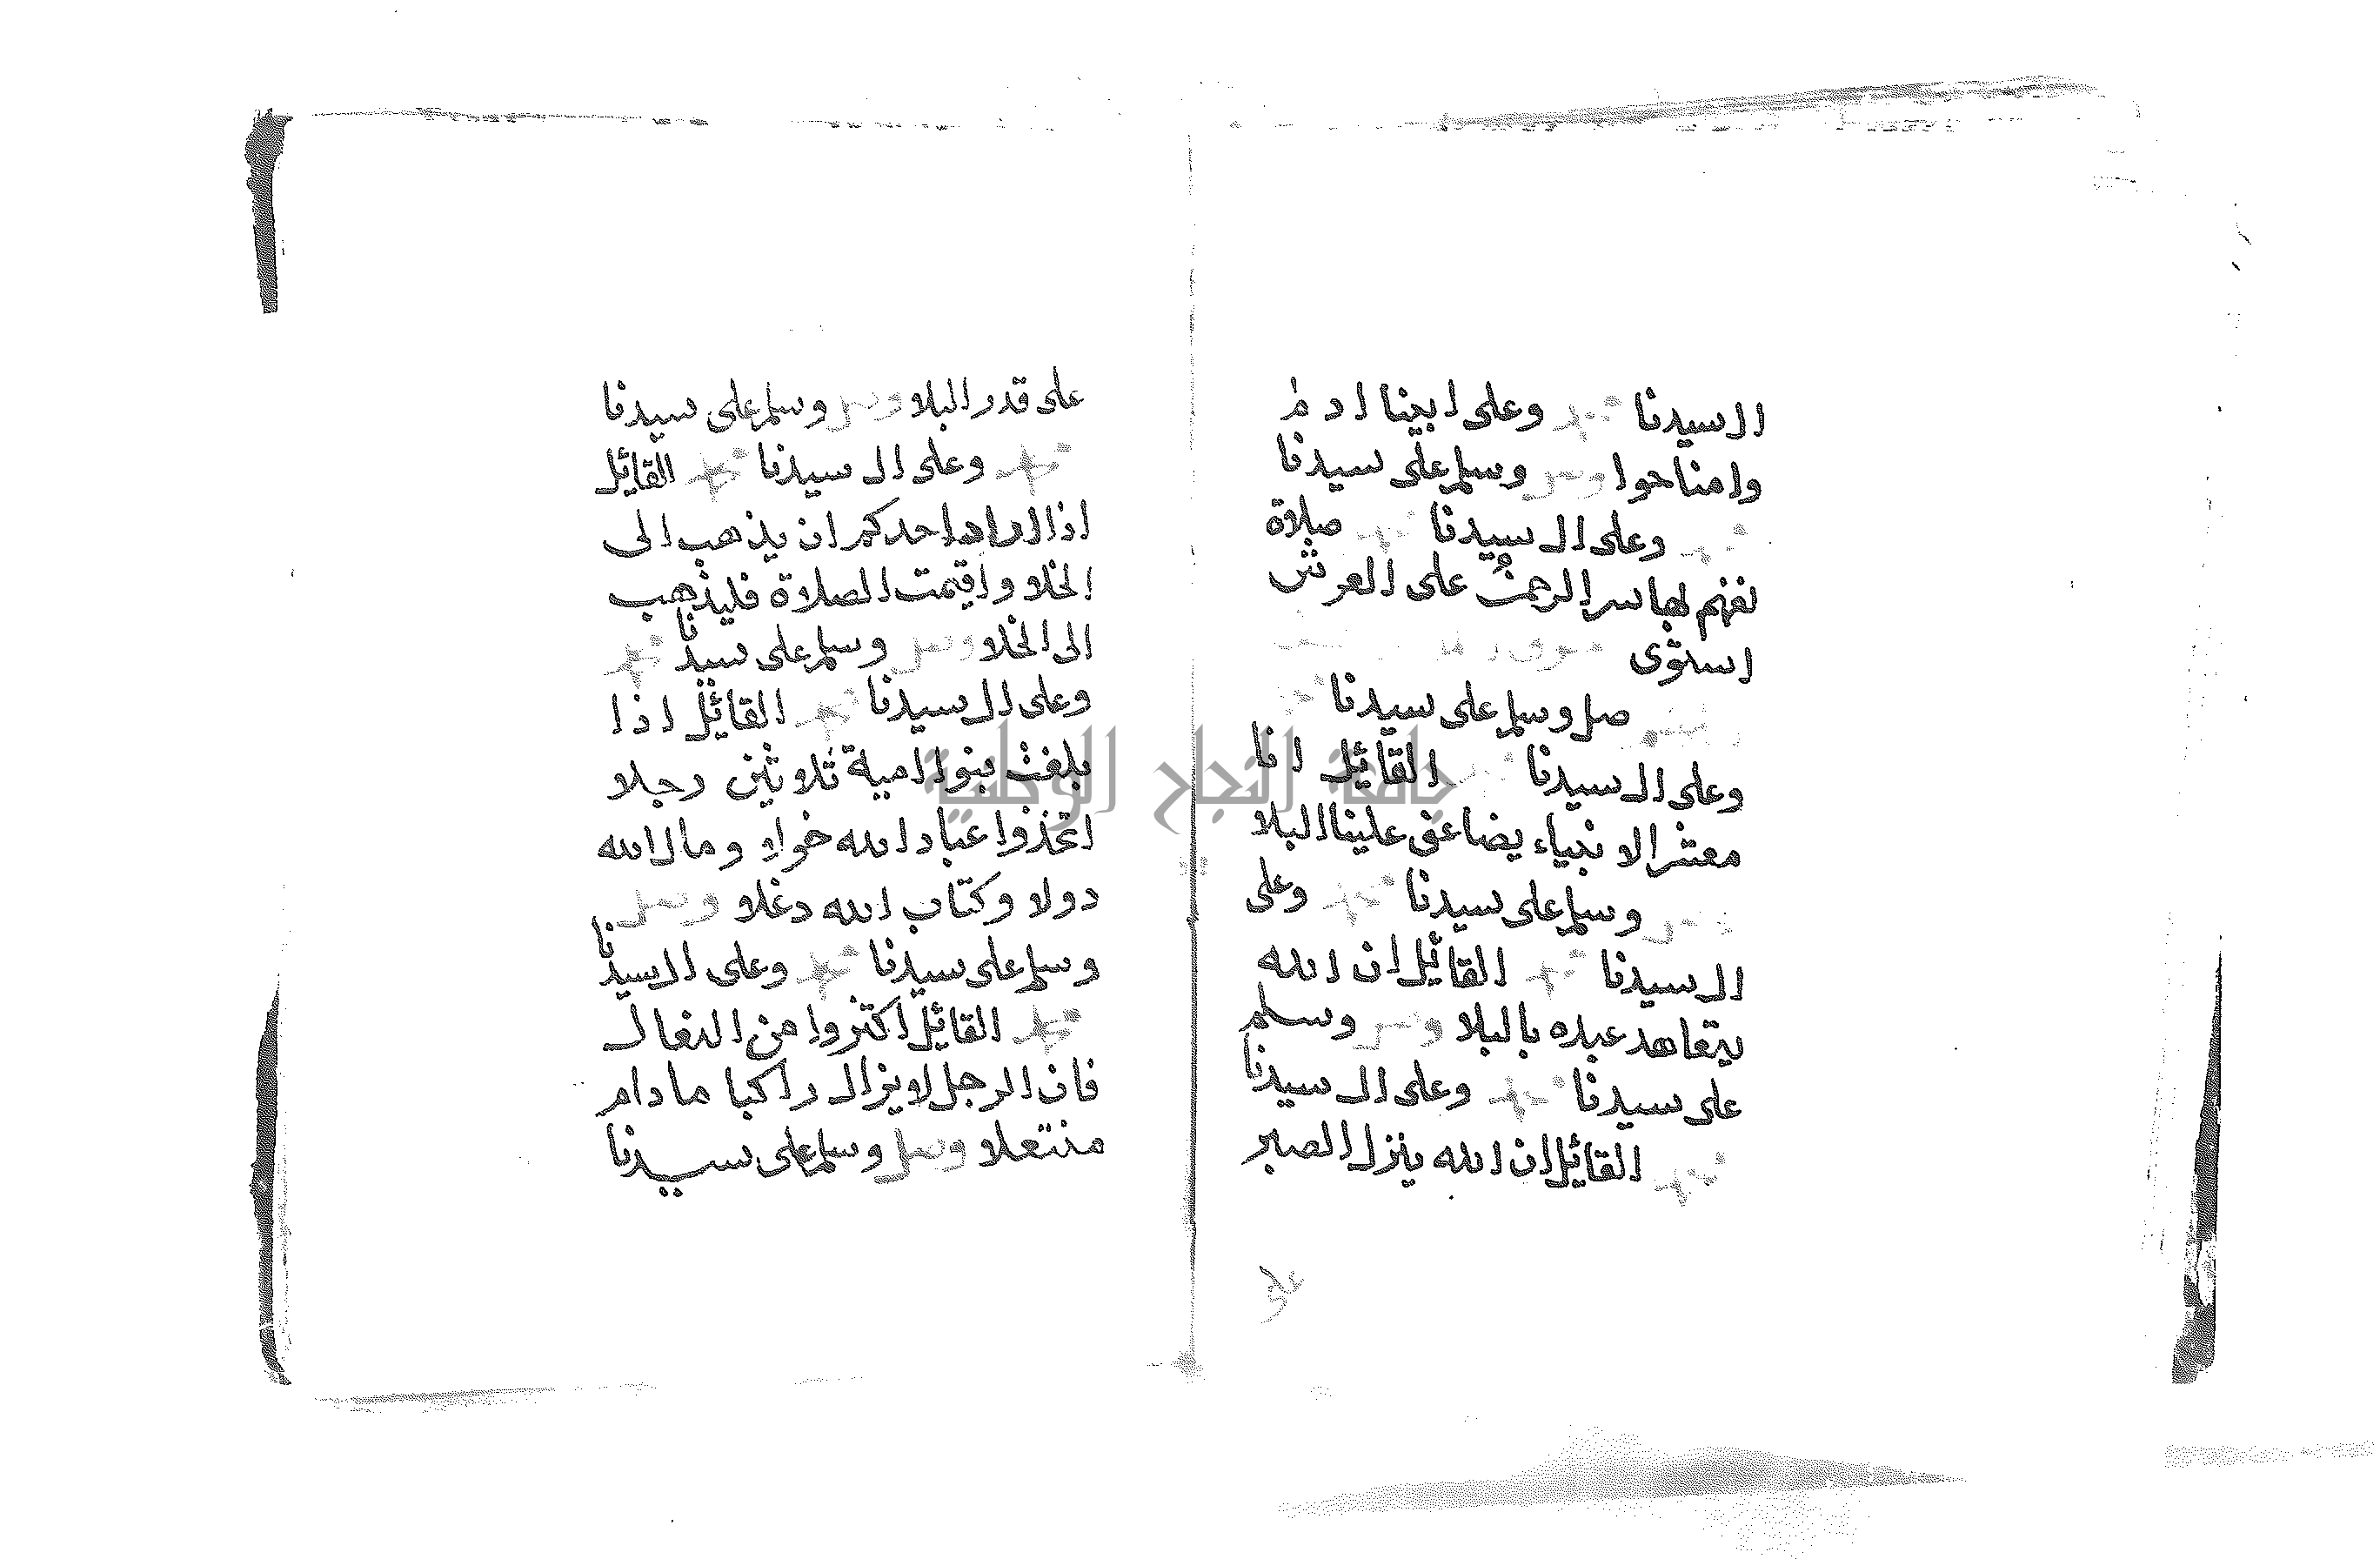 ال سيدنا محمد وعلى ابينا ادم
وامنا حوا وصل وسلم على سيدنا
محمد وعلى ال سيدنا محمد صلاة
نفهم بها سر الرحمن على العرش
استوى
صل وسلم على سيدنا محمد
وعلى ال سيدنا القائل انا
معشر الانبياء يضاعف علينا البلا
وصل وسلم على سيدنا محمد وعلى
ال سيدنا محمد القائل ان الله
يتعاهد عبده بالبلا وصل وسلم
على سيدنا محمد وعلى ال سيدنا
محمد القائل ان الله ينزل الصبر
على
على قدر البلا وصل وسلم على سيدنا
محمد وعلى ال سيدنا محمد القائل
اذا اراد احدكم ان يذهب الى
الخلا واقيمت الصلاة فليذهب
الى الخلا وصل وسلم على سيدنا محمد
وعلى ال سيدنا محمد القائل اذا
بلغت بنوا امية ثلاثين رجلا
اتخذوا عباد الله خولا ومال الله
دولا وكتاب الله دغلا وصل
وسلم على سيدنا محمد وعلى ال سيدنا
محمد القائل اكثروا من النعال
فان الرجل لا يزال راكبا ما دام
منتعلا وصل وسلم على سيدنا
جامعة النجاح الوطنية